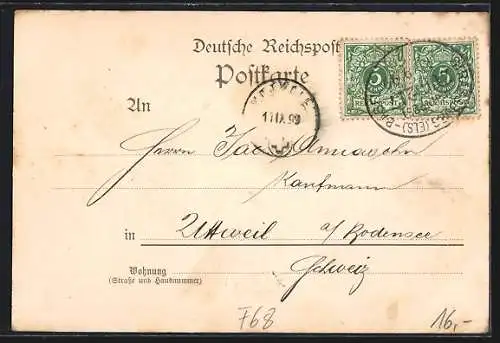 Deutsche Reichspost
Postkarte
5 5
REICHSPOST REICHSPOST
17 IX 99
(ELS)
An
Herrn Jac. Annasohn
Kaufmann
in Uttweil a/Bodensee
Schweiz
Wohnung
(Straße und Hausnummer)
F68
16,-